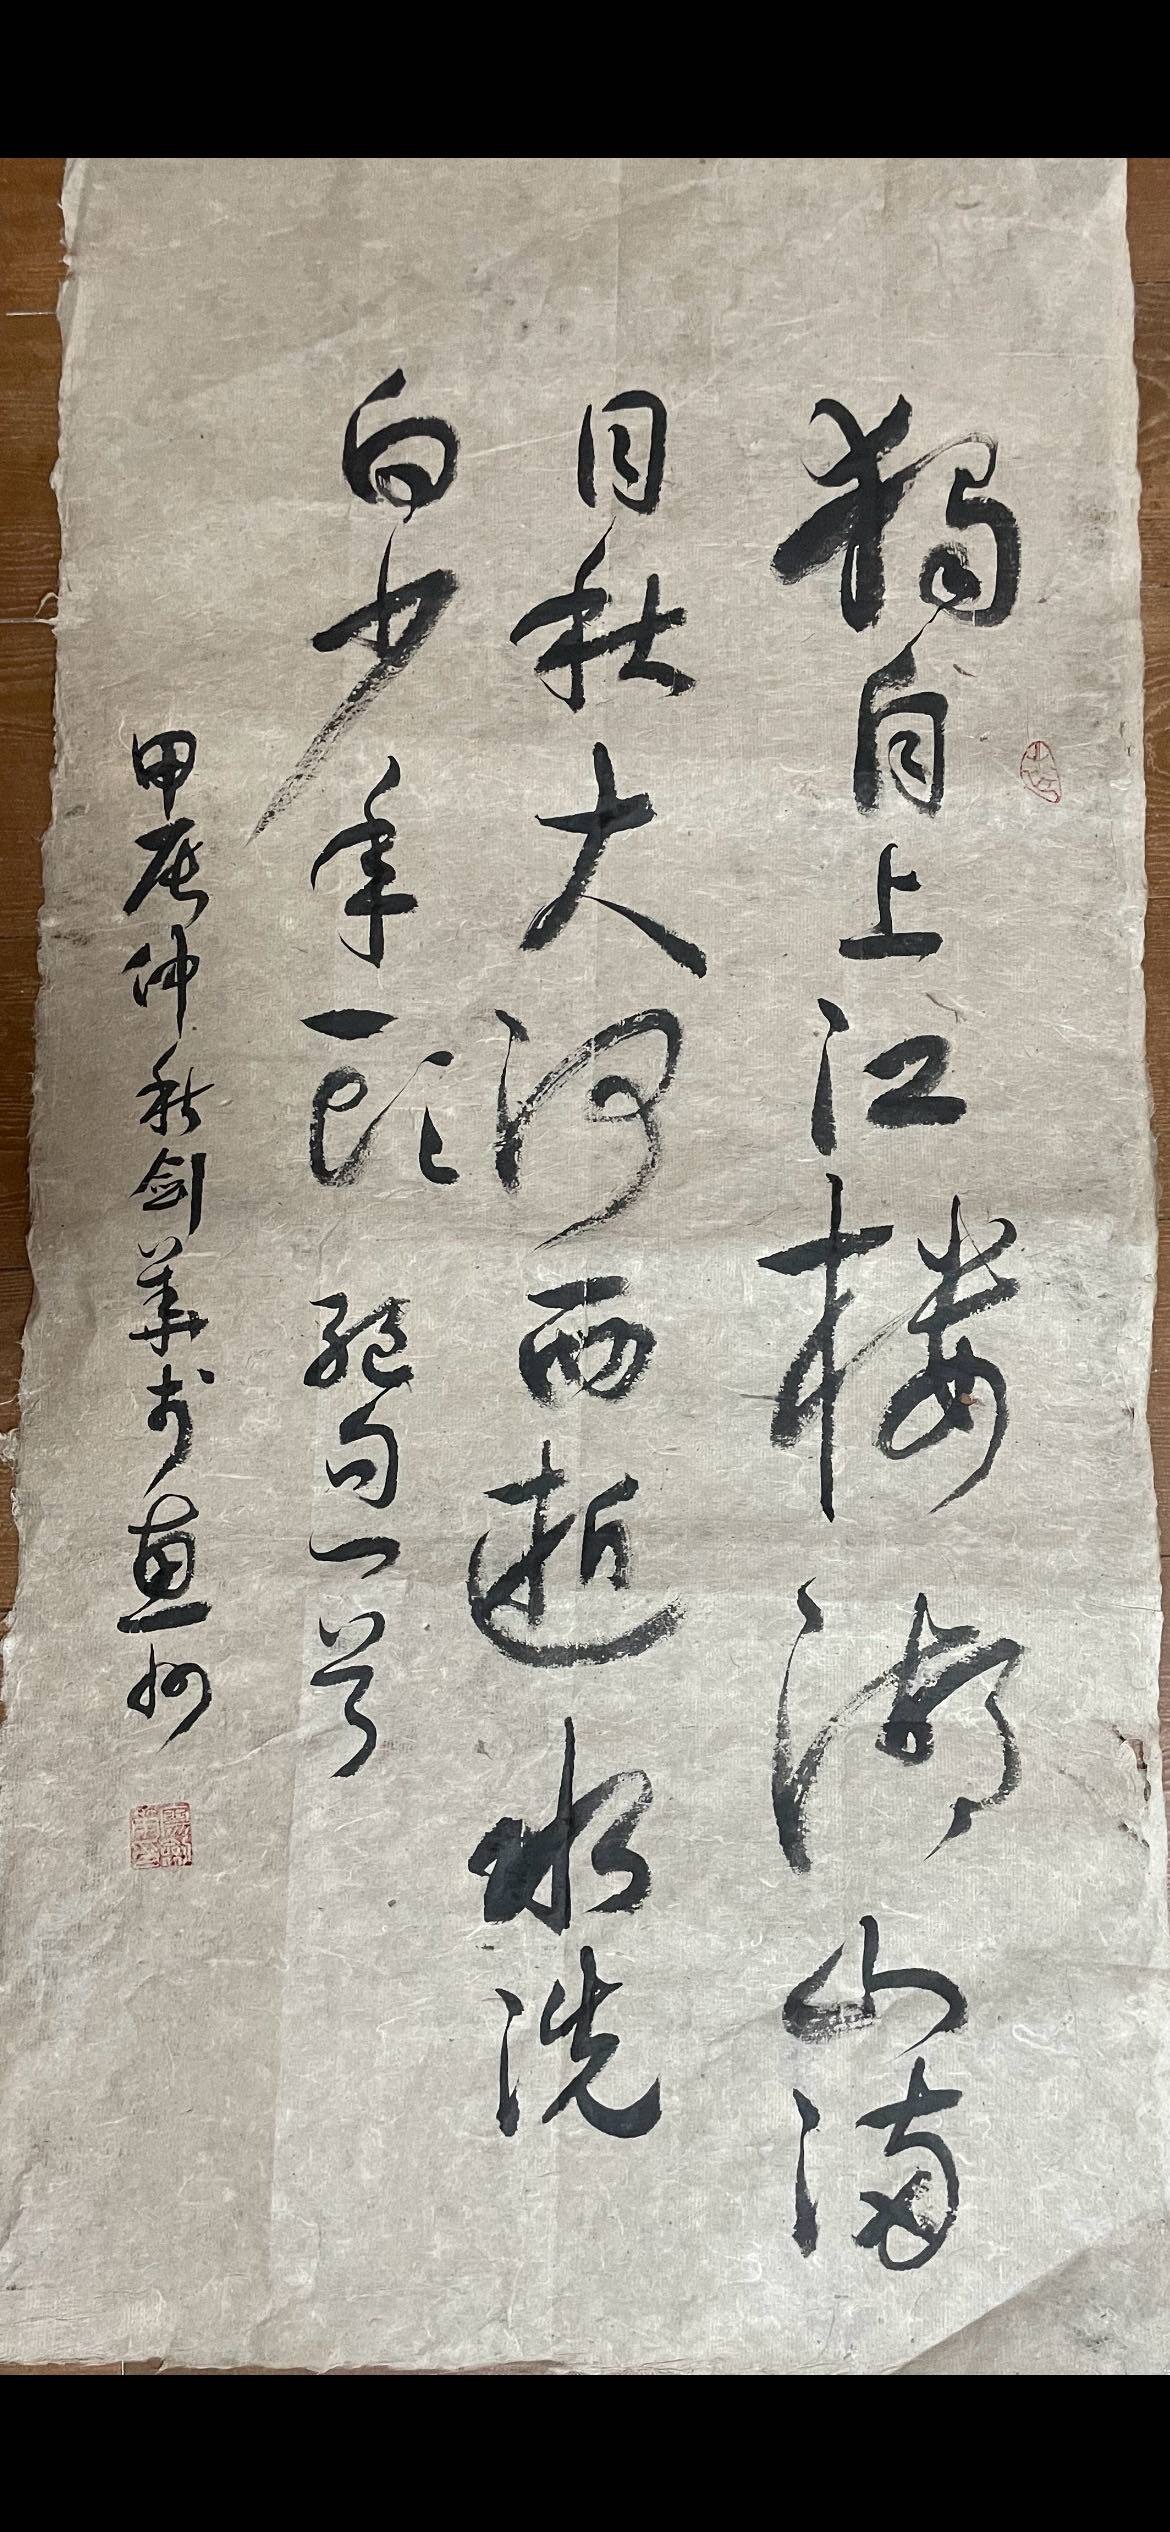 独自上江楼潮山满
目秋大河西逝水洗
白少年头 绝句一首
甲辰仲秋剑华书于惠州